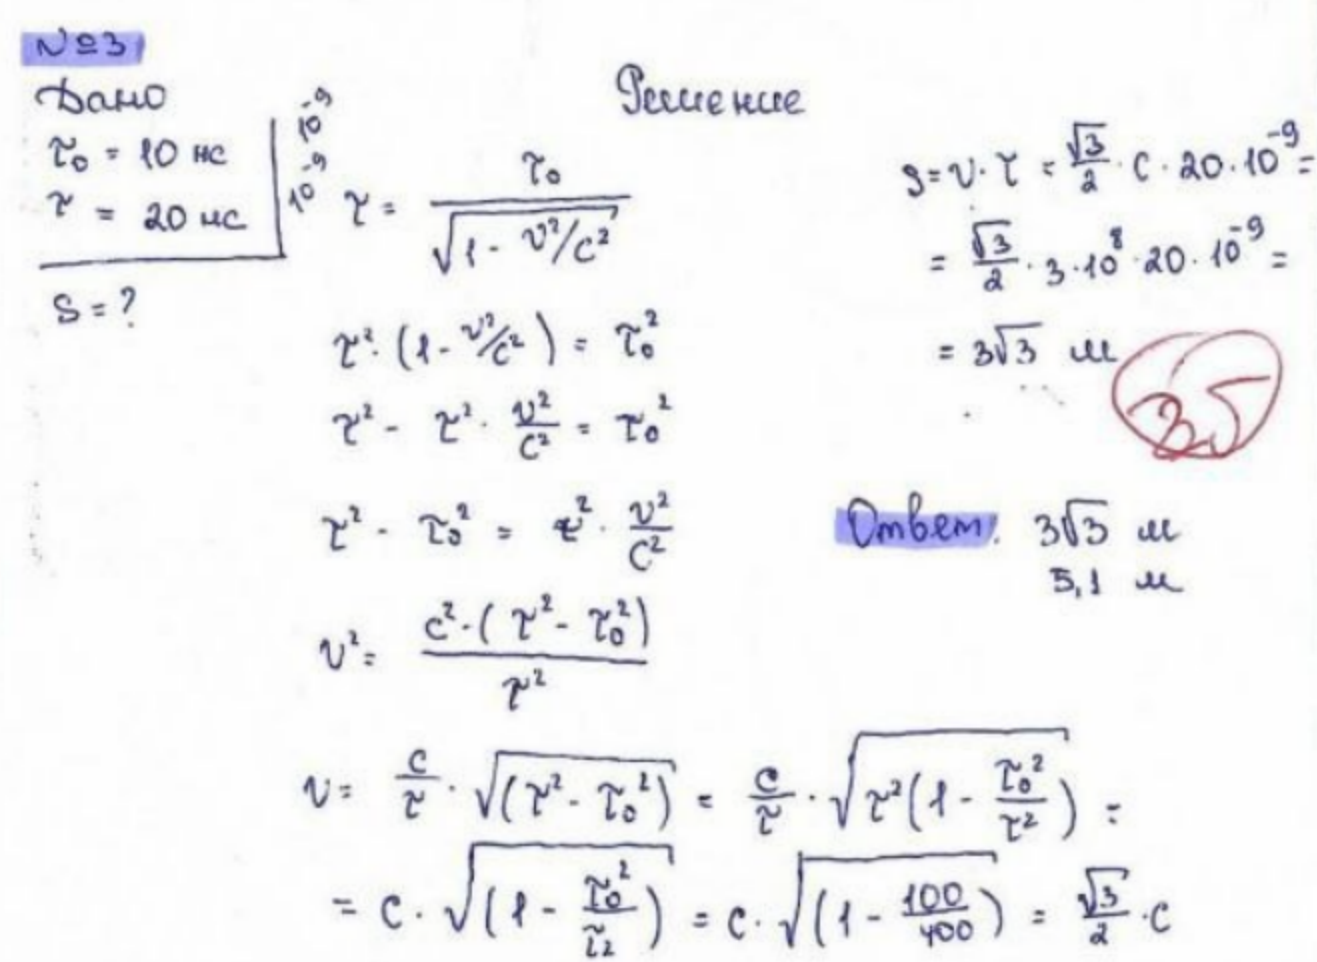 №3
Дано
τ₀ = 10 нс 10⁻⁹
τ = 20 нс 10⁻⁹
S = ?
Решение
τ = τ₀ / √(1 - v²/c²)
τ² · (1 - v²/c²) = τ₀²
τ² - τ² · v²/c² = τ₀²
τ² - τ₀² = τ² · v²/c²
v² = c² · (τ² - τ₀²) / τ²
v = c/τ · √(τ² - τ₀²) = c/τ · √(τ²(1 - τ₀²/τ²)) =
= c · √(1 - τ₀²/τ²) = c · √(1 - 100/400) = √3/2 · c
S = v · τ = √3/2 · c · 20 · 10⁻⁹ =
= √3/2 · 3 · 10⁸ · 20 · 10⁻⁹ =
= 3√3 м
Ответ: 3√3 м
5,1 м